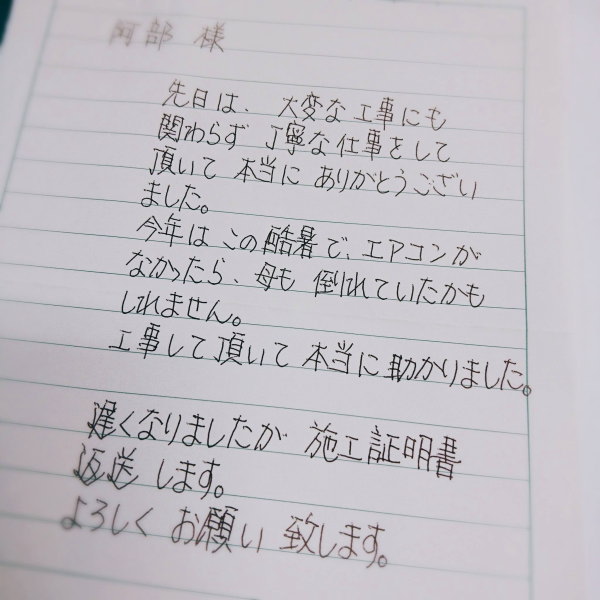 阿部 様
先日は、大変な工事にも
関わらず 丁寧な仕事をして
頂いて 本当に ありがとうござい
ました。
今年は この酷暑で、エアコンが
なかったら、母も 倒れていたかも
しれません。
工事して頂いて 本当に助かりました。
遅くなりましたが 施工証明書
返送 します。
よろしく お願い 致します。